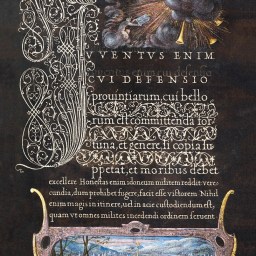 IVENTVS ENIM
CVI DEFENSIO
prouintiarum, cui bello
rum est committenda for
tuna, et genere, si copia su
ppetat, et moribus debet
excellere. Honestas enim idoneum militem reddit vere
cundia, dum prohibet fugere, facit esse victorem. Nihil
enim magis in itinere, uel in acie custodiendum est,
quam vt omnes milites incedendi ordinem seruent